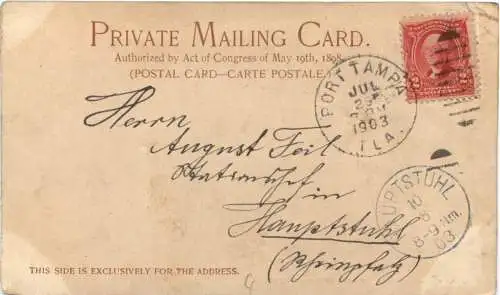 PRIVATE MAILING CARD.
Authorized by Act of Congress of May 19th, 1898.
(POSTAL CARD—CARTE POSTALE.)
PORT TAMPA
JUL
1903
FLA.
Herrn
August Feil
Hauptstuhl
(Rheinpfalz)
UPTSTUHL
10
8
8-9 Vm.
03
THIS SIDE IS EXCLUSIVELY FOR THE ADDRESS.